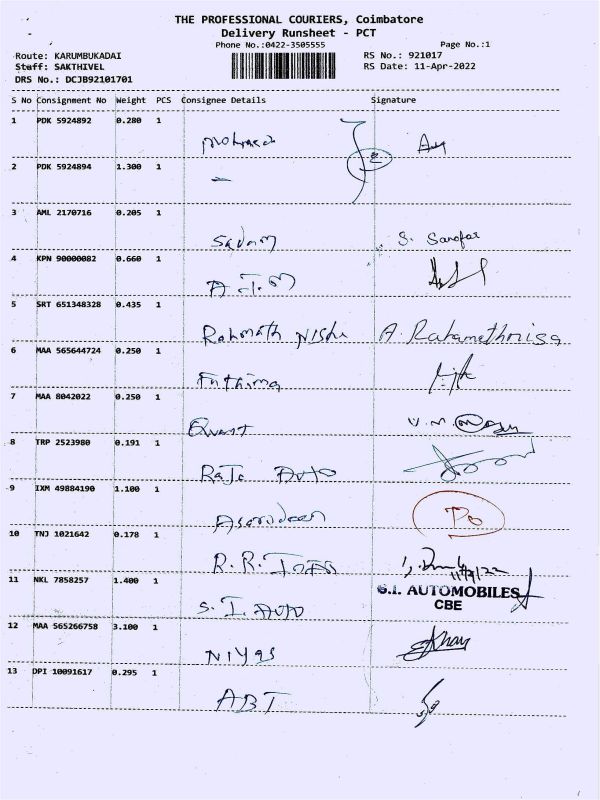 THE PROFESSIONAL COURIERS, Coimbatore
Delivery Runsheet - PCT
Phone No.:0422-3505555 Page No.:1
Route: KARUMBUKADAI RS No.: 921017
Staff: SAKTHIVEL RS Date: 11-Apr-2022
DRS No.: DCJB92101701
S No Consignment No Weight PCS Consignee Details Signature
1 PDK 5924892 0.280 1
2
2 PDK 5924894 1.300 1
3 AML 2170716 0.205 1
Sadam S. Sarofar
4 KPN 90000082 0.660 1
5 SRT 651348328 0.435 1
Rahmath Nisha A. Rahamethnisa
6 MAA 565644724 0.250 1
Futhima
7 MAA 8042022 0.250 1
8 TRP 2523980 0.191 1
Raja Auto
9 IXM 49884190 1.100 1
Asarudeen
10 TNJ 1021642 0.178 1
R.R.
11 NKL 7858257 1.400 1
S.I. AUTOMOBILES
CBE
S. I. Auto
12 MAA 565266758 3.100 1
Niyas
13 DPI 10091617 0.295 1
ABT